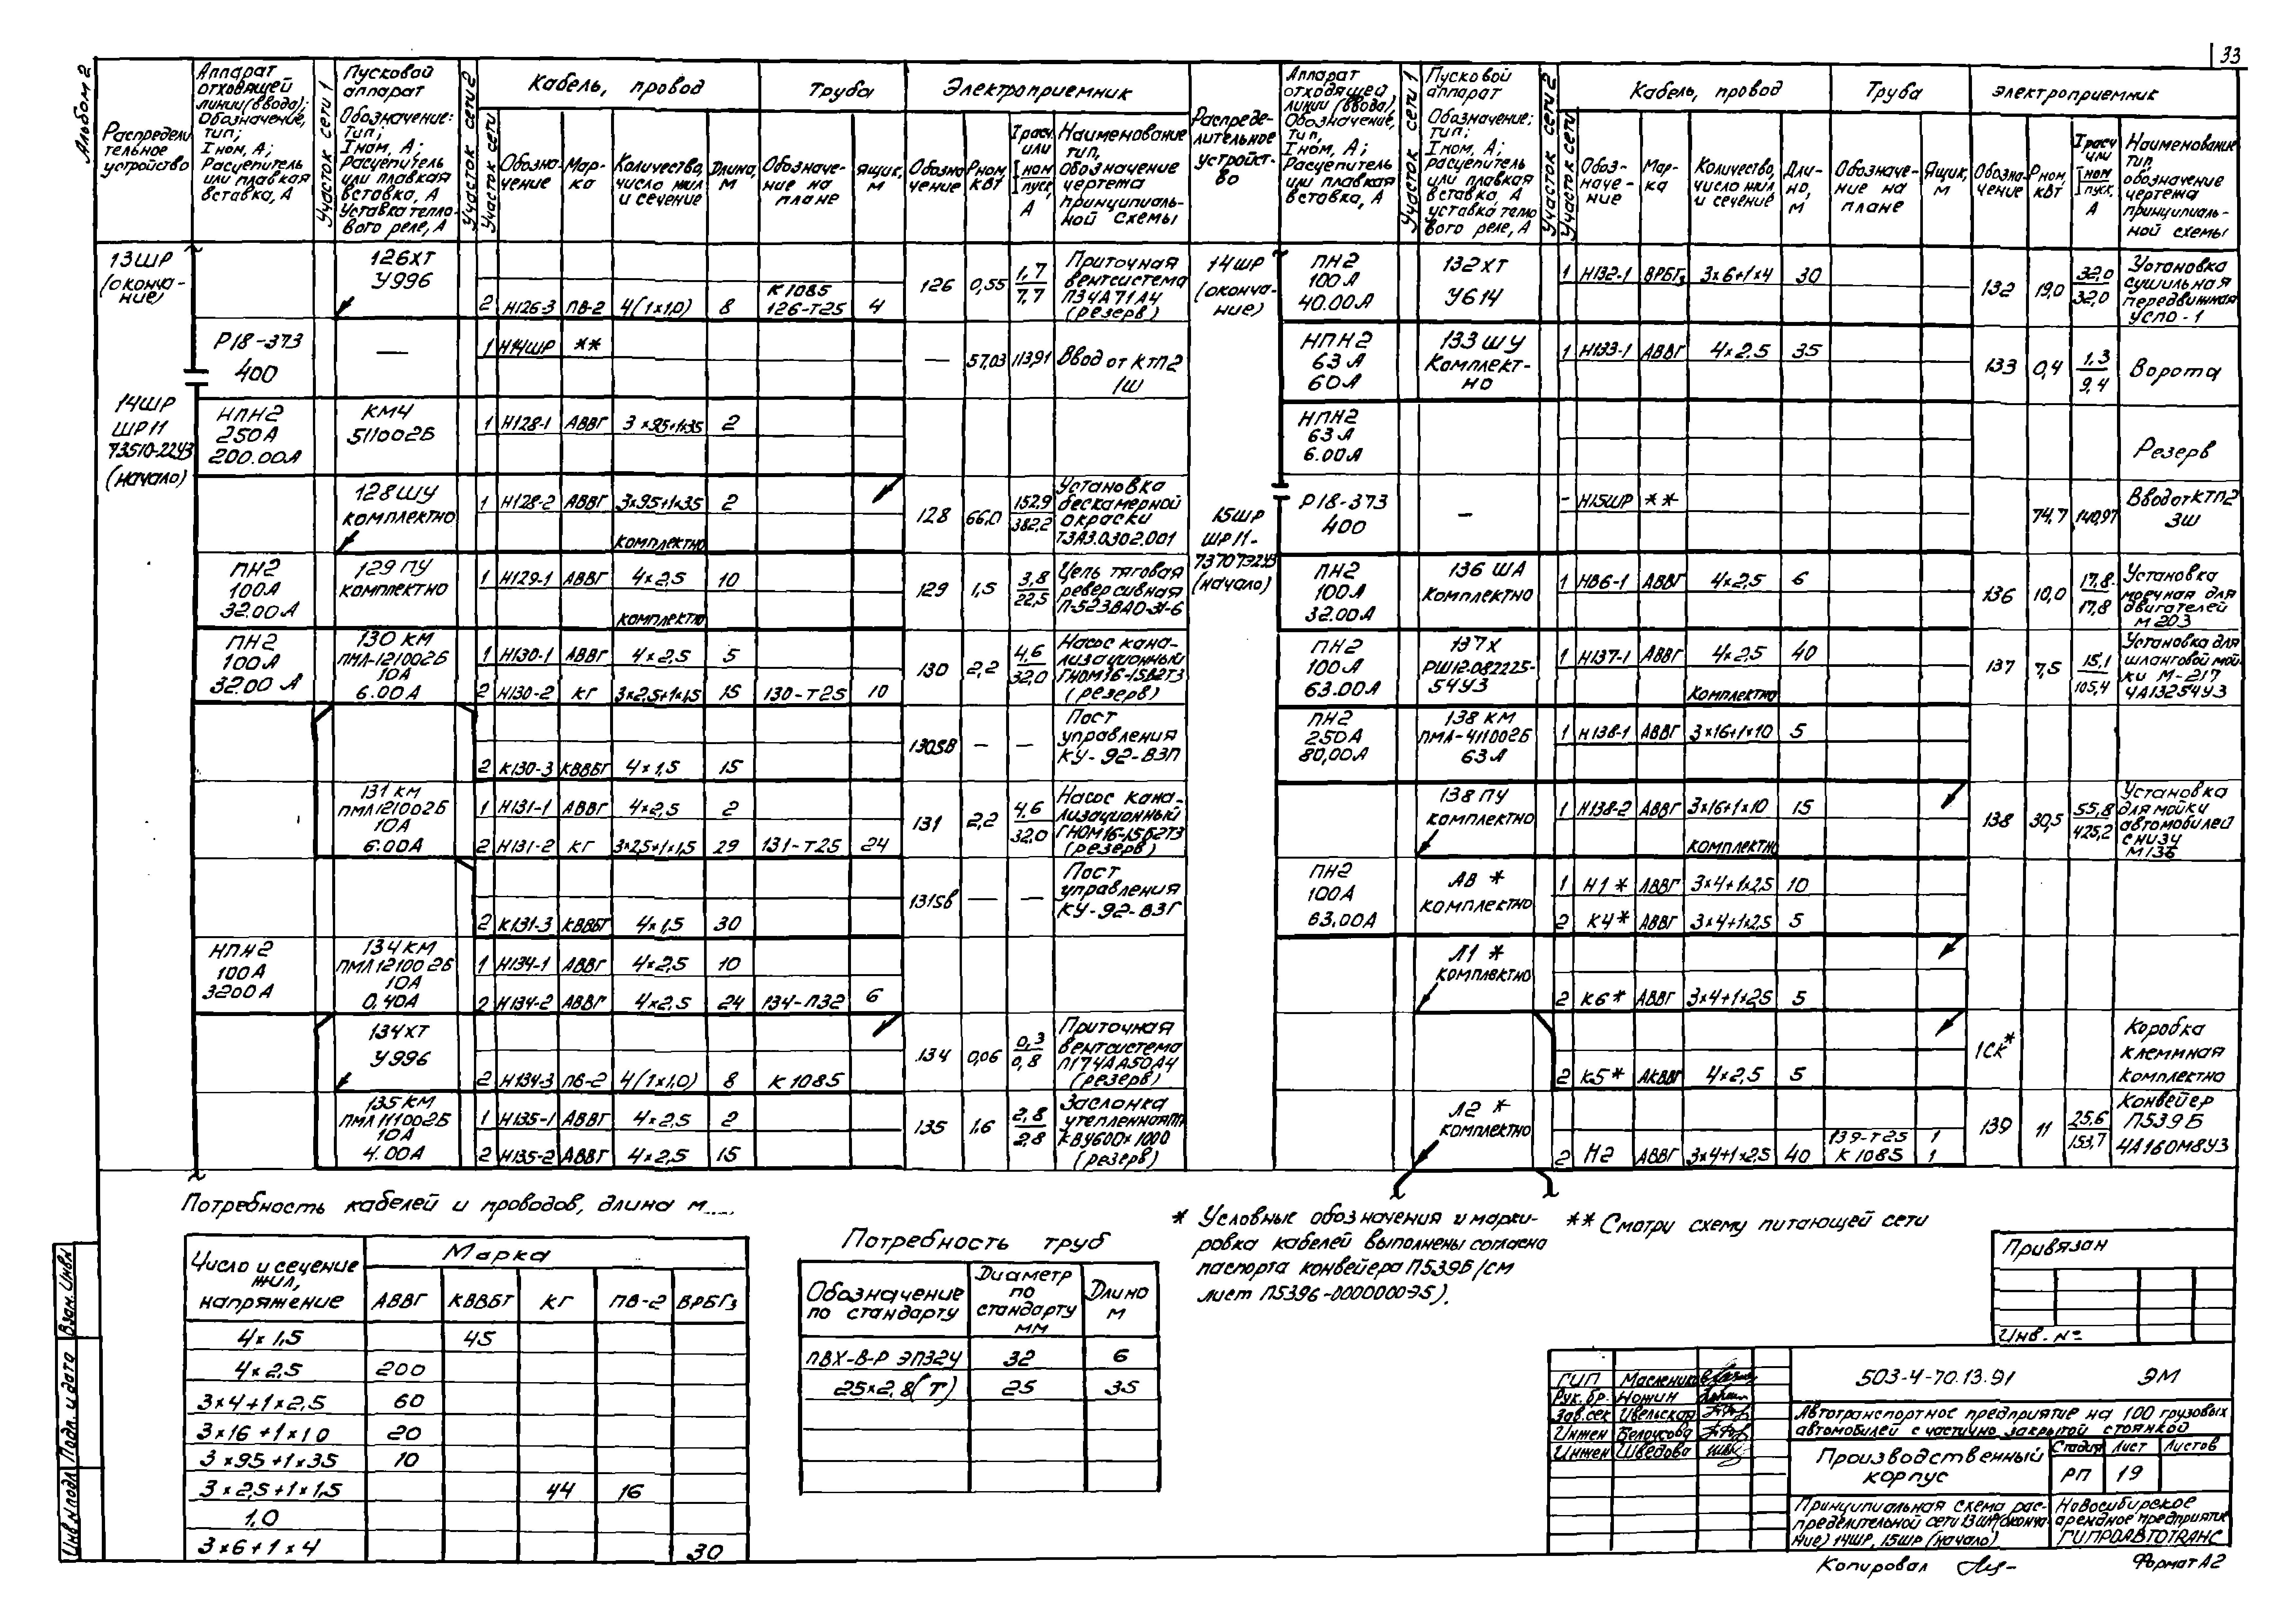 33
Альбом 2
Распредели
тельное
устройство
Аппарат
отходящей
линии (ввода);
Обозначение,
тип;
Iном, А;
Расцепитель
или плавкая
вставка, А
Участок сети 1
Пусковой
аппарат
Обозначение;
Тип;
Iном, А;
Расцепитель
или плавкая
вставка, А
Уставка тепло-
вого реле, А
Участок сети 2
Участок сети
Кабель, провод
Обозна-
чение
Мар-
ка
Количество,
число жил
и сечение
Длина,
м
Труба
Обозначе-
ние на
плане
Ящик,
м
Электроприемник
Обозна
чение
Рном,
кВт
Iрасч
или
Iном
Iпуск,
А
Наименование
тип,
обозначение
чертежа
принципиаль-
ной схемы
13ШР
(оконча-
ние)
126ХТ
У996
2 Н126-3 ПВ-2 4(1×1,0) 8
К1085
126-Т25 4
126 0,55 1,7
7,7
Приточная
вентсистема
П34А71А4
(резерв)
Р18-373
400
—
1 Н14ШР **
— 57,03 113,91 Ввод от КТП2
1Ш
14ШР
ШР11
73510-22У3
(начало)
НПН2
250А
200.00А
КМ4
511002Б
1 Н128-1 АВВГ 3×95+1×35 2
128ШУ
комплектно
1 Н128-2 АВВГ 3×95+1×35 2
комплектно
128 66,0 152,9
382,2
Установка
бескамерной
окраски
ТЗА3.0302.001
ПН2
100А
32.00А
129 ПУ
комплектно
1 Н129-1 АВВГ 4×2,5 10
комплектно
129 1,5 3,8
22,5
Цепь тяговая
реверсивная
П-523ВАО-31-6
ПН2
100А
32.00 А
130 КМ
ПМЛ-121002Б
10А
6.00А
1 Н130-1 АВВГ 4×2,5 5
2 Н130-2 КГ 3×2,5+1×1,5 15 130-Т25 10
130 2,2 4,6
32,0
Насос кана-
лизационный
ГНОМ16-15Б2Т3
(резерв)
2 К130-3 КВВБГ 4×1,5 15
130SB — —
Пост
управления
КУ-92-ВЗП
131 КМ
ПМЛ121002Б
10А
6.00А
1 Н131-1 АВВГ 4×2,5 2
2 Н131-2 КГ 3×2,5+1×1,5 29 131-Т25 24
131 2,2 4,6
32,0
Насос кана-
лизационный
ГНОМ16-15Б2Т3
(резерв)
2 К131-3 КВВБГ 4×1,5 30
131SB — —
Пост
управления
КУ-92-ВЗГ
НПН2
100А
3200А
134 КМ
ПМЛ121002Б
10А
0.40А
1 Н134-1 АВВГ 4×2,5 10
2 Н134-2 АВВГ 4×2,5 24 134-П32 6
134ХТ
У996
2 Н134-3 ПВ-2 4(1×1,0) 8 К1085
134 0,06 0,3
0,8
Приточная
вентсистема
П174АА50А4
(резерв)
135 КМ
ПМЛ111002Б
10А
4.00А
1 Н135-1 АВВГ 4×2,5 2
2 Н135-2 АВВГ 4×2,5 15
135 1,6 2,8
2,8
Заслонка
утепленная
КВУ600×1000
(резерв)
Распреде-
лительное
устройст-
во
Аппарат
отходящей
линии (ввода),
Обозначение,
Тип,
Iном, А;
Расцепитель
или плавкая
вставка, А
Участок сети 1
Пусковой
аппарат
Обозначение;
тип;
Iном, А;
расцепитель
или плавкая
вставка, А
уставка тепло
вого реле, А
Участок сети 2
Участок сети
Кабель, провод
Обоз-
наче-
ние
Мар-
ка
Количество,
число жил
и сечение
Дли-
на,
м
Труба
Обозначе-
ние на
плане
Ящик,
м
Электроприемник
Обозна-
чение
Рном,
кВт
Iрасч
или
Iном
Iпуск.
А
Наименование
тип
обозначение
чертежа
принципиаль-
ной схемы
14ШР
(оконча-
ние)
ПН2
100А
40.00А
132ХТ
У614
1 Н132-1 ВРБГз 3×6+1×4 30
132 19,0 32,0
32,0
Установка
сушильная
передвижная
УСПО-1
НПН2
63А
60А
133 ШУ
Комплект-
но
1 Н133-1 АВВГ 4×2,5 35
133 0,4 1,3
9,4
Ворота
НПН2
63А
6.00А
Резерв
15ШР
ШР11-
73707322У3
(начало)
Р18-373
400
—
- Н15ШР **
74,7 140,97 Ввод от КТП2
3Ш
ПН2
100А
32.00А
136 ША
Комплектно
1 Н136-1 АВВГ 4×2,5 6
136 10,0 17,8
17,8
Установка
моечная для
двигателей
М203
ПН2
100А
63.00А
137Х
РШ12.087225-
54У3
1 Н137-1 АВВГ 4×2,5 40
Комплектно
137 7,5 15,1
105,4
Установка для
шланговой мой-
ки М-217
4А132S4У3
ПН2
250А
80,00А
138 КМ
ПМЛ-411002Б
63А
1 Н138-1 АВВГ 3×16+1×10 5
138 ПУ
комплектно
1 Н138-2 АВВГ 3×16+1×10 15
комплектно
138 30,5 55,8
425,2
Установка
для мойки
автомобилей
снизу
М136
ПН2
100А
63,00А
АВ *
комплектно
1 Н1* АВВГ 3×4+1×2,5 10
2 К4* АВВГ 3×4+1×2,5 5
Л1 *
комплектно
2 К6* АВВГ 3×4+1×2,5 5
2 К5* АКВВГ 4×2,5 5
1СК*
Коробка
клеммная
комплектно
Л2 *
комплектно
2 Н2 АВВГ 3×4+1×2,5 40
139-Т25 1
К 1085 1
139 11 25,6
153,7
Конвейер
П539Б
4А160М8У3
Потребность кабелей и проводов, длина м
Число и сечение
жил,
напряжение
Марка
АВВГ КВВБГ КГ ПВ-2 ВРБГз
4×1,5 45
4×2,5 200
3×4+1×2,5 60
3×16+1×10 20
3×95+1×35 10
3×2,5+1×1,5 44 16
1,0
3×6+1×4 30
Потребность труб
Обозначение
по стандарту
Диаметр
по
стандарту
мм
Длина
м
ПВХ-В-Р ЭП32У 32 6
25×2,8(Т) 25 35
* Условные обозначения и марки-
ровка кабелей выполнены согласно
паспорта конвейера П539Б /см
лист П539Б-0000000Э5).
** Смотри схему питающей сети
Привязан
Инв. №
ГИП Маслеников
Рук.бр. Ножин
Зав.сек Цвельская
Инжен Белоусова
Инжен Шведова
503-4-70.13.91 ЭМ
Автотранспортное предприятие на 100 грузовых
автомобилей с частично закрытой стоянкой
Производственный
корпус
Стадия Лист Листов
РП 19
Принципиальная схема рас-
пределительной сети 13ШР(оконча-
ние) 14ШР, 15ШР (начало)
Новосибирское
арендное предприятие
ГИПРОАВТОТРАНС
Копировал
Формат А2
Взам. инв.№
Подп. и дата
Инв.№ подл